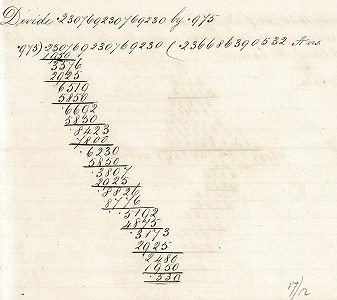 Divide .230769230769230 by .975
.975).230769230769230(.236686390532 Ans
1950
3576
2925
.6519
5850
.6692
5850
.8423
7800
.6230
5850
.3807
2925
.8826
8775
.5192
4875
.3173
2925
.2480
1950
.530
17/12